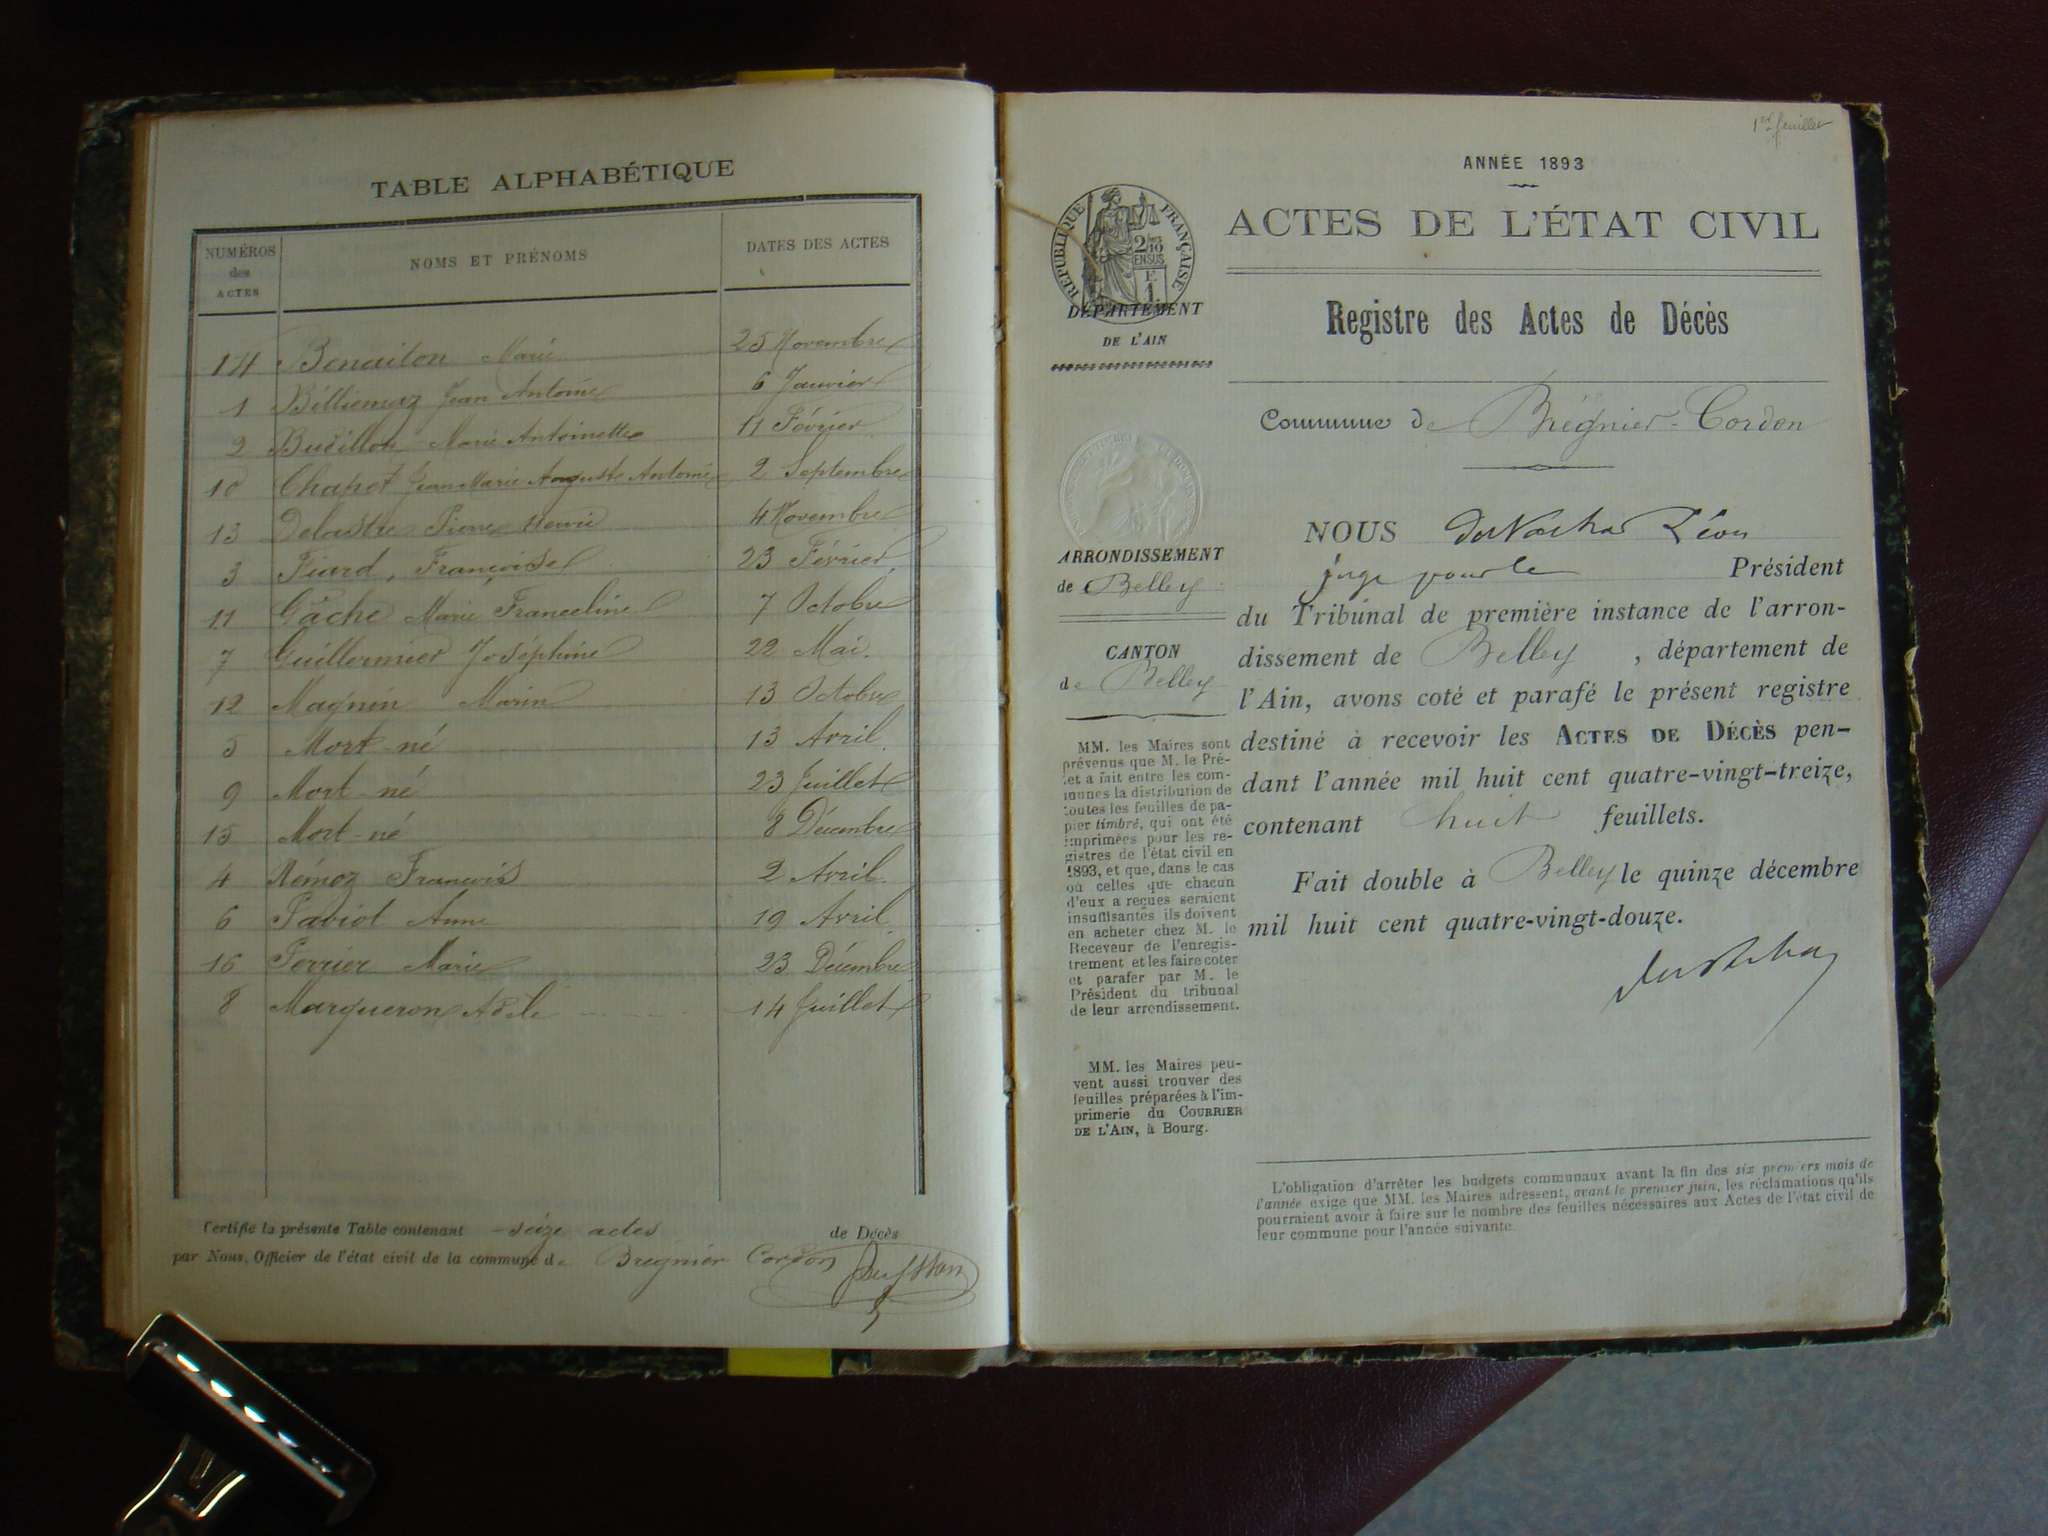 TABLE ALPHABÉTIQUE
NUMÉROS des ACTES
NOMS ET PRÉNOMS
DATES DES ACTES
14 Benaiton Marie 25 Novembre
1 Billiemaz Jean Antoine 6 Janvier
2 Budillon Marie Antoinette 11 Février
10 Chapot Jean Marie Auguste Antoine 2 Septembre
13 Delastre Pierre Henri 4 Novembre
3 Fiard, Françoise 23 Février
11 Gâche Marie Franceline 7 Octobre
7 Guillermier Joséphine 22 Mai.
12 Magnin Marin 13 Octobre
5 Mort-né 13 Avril.
9 Mort-né 23 Juillet
15 Mort-né 8 Décembre
4 Rémoz François 2 Avril.
6 Paviot Anne 19 Avril
16 Perrier Marie 23 Décembre
8 Marqueron Adèle 14 Juillet
Certifié la présente Table contenant seize actes de Décès
par Nous, Officier de l'état civil de la commune de Bregnier Cordon
1er feuillet
ANNÉE 1893
ACTES DE L'ÉTAT CIVIL
RÉPUBLIQUE FRANÇAISE
2/10 EN SUS
1 F
DÉPARTEMENT
DE L'AIN
Registre des Actes de Décès
Commune de Brégnier-Cordon
ARRONDISSEMENT
de Belley
CANTON
de Belley
MM. les Maires sont
prévenus que M. le Pré-
fet a fait entre les com-
munes la distribution de
toutes les feuilles de pa-
pier timbré, qui ont été
imprimées pour les re-
gistres de l'état civil en
1893, et que, dans le cas
où celles que chacun
d'eux a reçues seraient
insuffisantes ils doivent
en acheter chez M. le
Receveur de l'enregis-
trement et les faire coter
et parafer par M. le
Président du tribunal
de leur arrondissement.
MM. les Maires peu-
vent aussi trouver des
feuilles préparées à l'im-
primerie du COURRIER
DE L'AIN, à Bourg.
NOUS Léon
juge pour le Président
du Tribunal de première instance de l'arron-
dissement de Belley, département de
l'Ain, avons coté et parafé le présent registre
destiné à recevoir les ACTES DE DÉCÈS pen-
dant l'année mil huit cent quatre-vingt-treize,
contenant huit feuillets.
Fait double à Belley le quinze décembre
mil huit cent quatre-vingt-douze.
L'obligation d'arrêter les budgets communaux avant la fin des six premiers mois de
l'année exige que MM. les Maires adressent, avant le premier juin, les réclamations qu'ils
pourraient avoir à faire sur le nombre des feuilles nécessaires aux Actes de l'état civil de
leur commune pour l'année suivante.